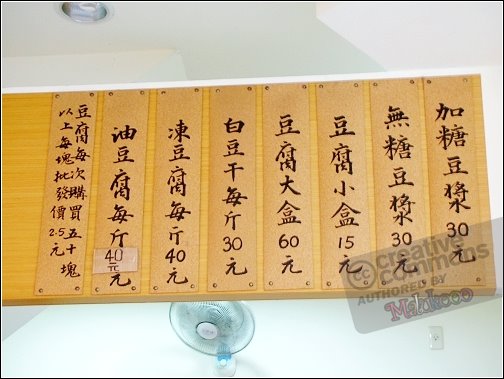 加糖豆漿30元
無糖豆漿30元
豆腐小盒15元
豆腐大盒60元
白豆干每斤30元
凍豆腐每斤40元
油豆腐每斤40元
豆腐每次購買五十塊
以上每塊批發價2.5元
creative commons
AUTHORED BY